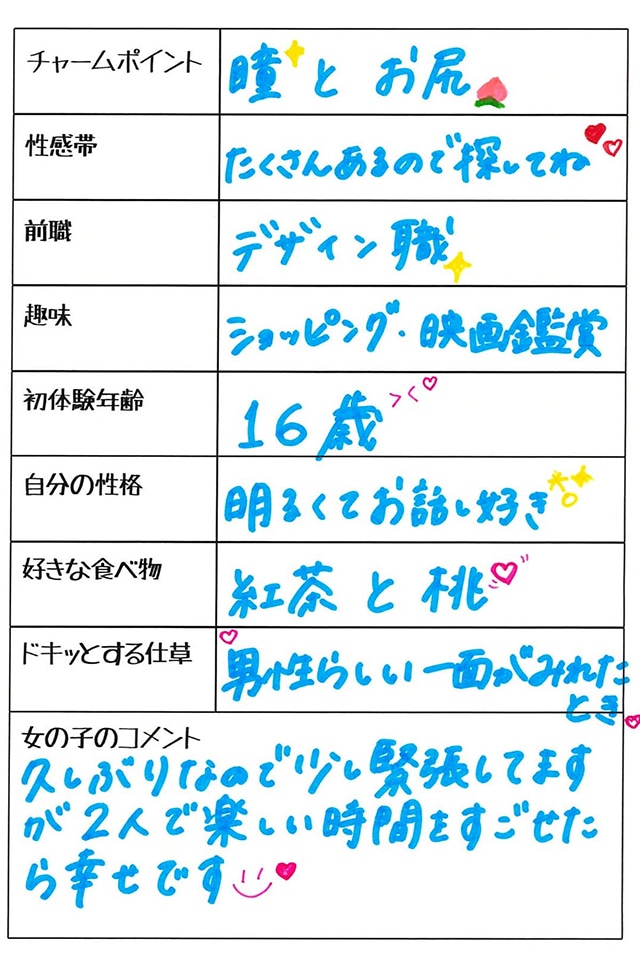 チャームポイント 瞳と お尻
性感帯 たくさんあるので探してね
前職 デザイン職
趣味 ショッピング・映画鑑賞
初体験年齢 16歳
自分の性格 明るくてお話し好き
好きな食べ物 紅茶と桃
ドキッとする仕草 男性らしい一面がみれた
とき
女の子のコメント
久しぶりなので少し緊張してます
が2人で楽しい時間をすごせた
ら幸せです